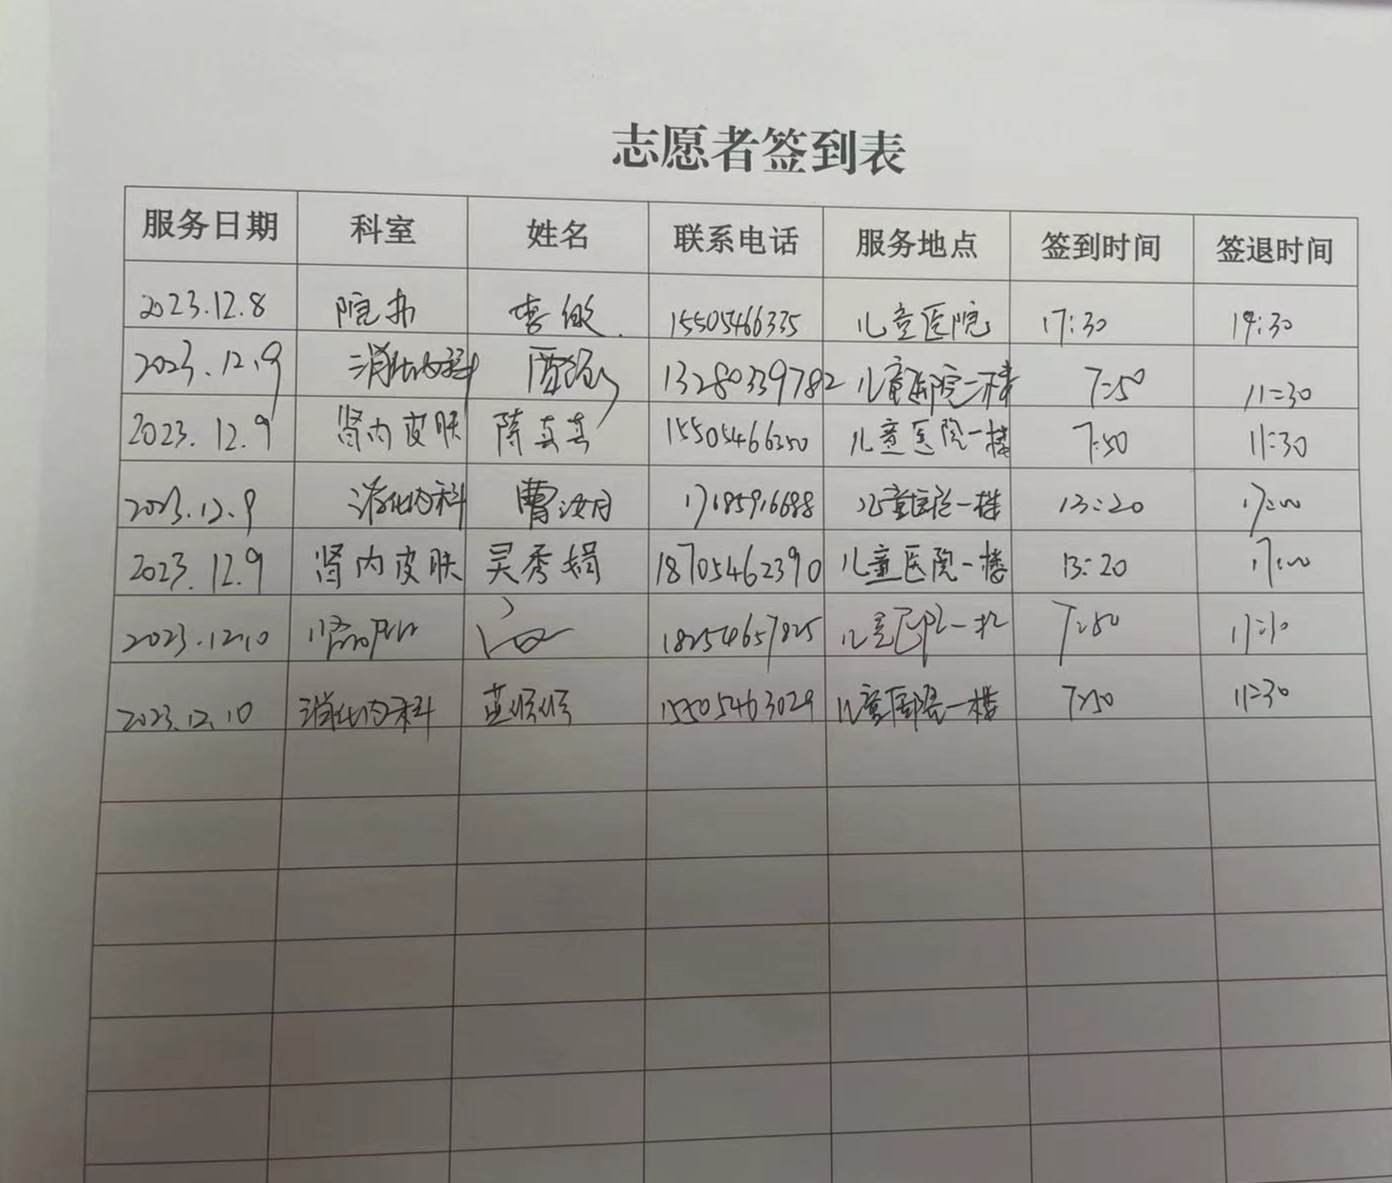 志愿者签到表
服务日期 科室 姓名 联系电话 服务地点 签到时间 签退时间
2023.12.8 院办 李敏 15505466335 儿童医院 17:30 19:30
2023.12.9 消化内科 13280339782 儿童医院二楼 7:50 11:30
2023.12.9 肾内皮肤 陈真真 15505466350 儿童医院一楼 7:50 11:30
2023.12.9 消化内科 曹汝月 17185916688 儿童医院一楼 13:20 17:00
2023.12.9 肾内皮肤 吴秀娟 18705462390 儿童医院一楼 13:20 17:00
2023.12.10 18254657825 儿童医院一楼 7:50
2023.12.10 消化内科 15505463029 儿童医院一楼 7:50 11:30